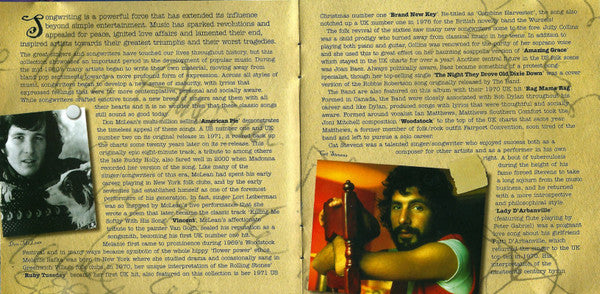 Songwriting is a powerful force that has extended its influence
beyond simple entertainment. Music has sparked revolutions and
appealed for peace, ignited love affairs and lamented their end,
inspired artists towards their greatest triumphs and their worst tragedies.
The great singers and songwriters have touched our lives throughout history, but this
collection pinpoints an important period in the development of popular music. During
the mid sixties many artists began to write their own material, moving away from
bland pop as music became a more profound form of expression. Across all styles of
music, songwriters began to develop a new sense of maturity, with lyrics that
expressed feelings that were far more emotional and socially aware.
While songwriters crafted emotive tones, a new breed of singer sang them with all
their hearts and it is no wonder that these classic songs
still sound so good today.
Don McLean's multi-million selling 'American Pie' demonstrates
the timeless appeal of these songs. A US number one and UK number
two on its original release in 1971, it found its way back into
the charts some twenty years later on its re release. This
originally epic eight-minute track, a tribute to among others
the late Buddy Holly, also fared well in 2000 when Madonna
recorded her version of the song. Like many of the
singer/songwriters of this era, McLean had spent his early
career playing in New York folk clubs, and by the early
seventies had established himself as one of the foremost
performers of his generation. In fact, singer Lori Lieberman
was so inspired by McLean's live performance that she
wrote a poem that later became the classic track 'Killing Me
Softly With His Song'. 'Vincent', McLean's affectionate
tribute to the painter Van Gogh, sealed his reputation as a
songsmith, becoming his first UK number one hit.
Melanie first came to prominence during 1969's Woodstock
Festival and in many ways became symbolic of the whole hippy 'flower power' ethos.
Melanie Safka was born in New York where she studied drama and occasionally sang in
Greenwich Village folk clubs. In 1970, her unique interpretation of the Rolling Stones'
'Ruby Tuesday' became her first UK hit, also featured on this collection is her 1971 US
Don McLean
Christmas number one 'Brand New Key'. Re-titled as 'Combine Harvester', the song also
notched up a UK number one in 1976 for the British novelty band the Wurzels!
The folk revival of the sixties saw many new songwriters come to the fore. Judy Collins
was a child prodigy who turned away from classical music in her teens. In addition to
playing both piano and guitar, Collins was renowned for the clarity of her soprano voice
and she used this to great effect on her haunting acappella version of 'Amazing Grace'
which stayed in the UK charts for over a year! Another central figure in the US folk scene
was Joan Baez. Always politically aware, Baez became something of a protest song
specialist, though her top-selling single 'The Night They Drove Old Dixie Down' was a cover
version of the Robbie Robertson song originally released by The Band.
The Band are also featured on this album with their 1970 UK hit 'Rag Mama Rag'
Formed in Canada, the Band were closely associated with Bob Dylan throughout his
career and like Dylan, produced songs with lyrics that were thoughtful and socially
aware. Formed around vocalist Ian Matthews, Matthews Southern Comfort took the
Joni Mitchell composition, 'Woodstock' to the top of the UK charts that same year.
Matthews, a former member of folk/rock outfit Fairport Convention, soon tired of the
band and left to pursue a solo career.
Cat Stevens was a talented singer-songwriter who enjoyed success both as a
composer for other artists and as a performer in his own
right. A bout of tuberculosis
during the height of his
fame forced Stevens to take
a long sojourn from the music
business, and he returned
with a more introspective
and philosophical style.
'Lady D'Arbanville'
(featuring flute playing by
Peter Gabriel) was a poignant
love song about his girlfriend
Patti D'Arbanville, which
returned the singer to the UK
top ten in 1970. His
interpretation of the
nineteenth century hymn
Cat Stevens